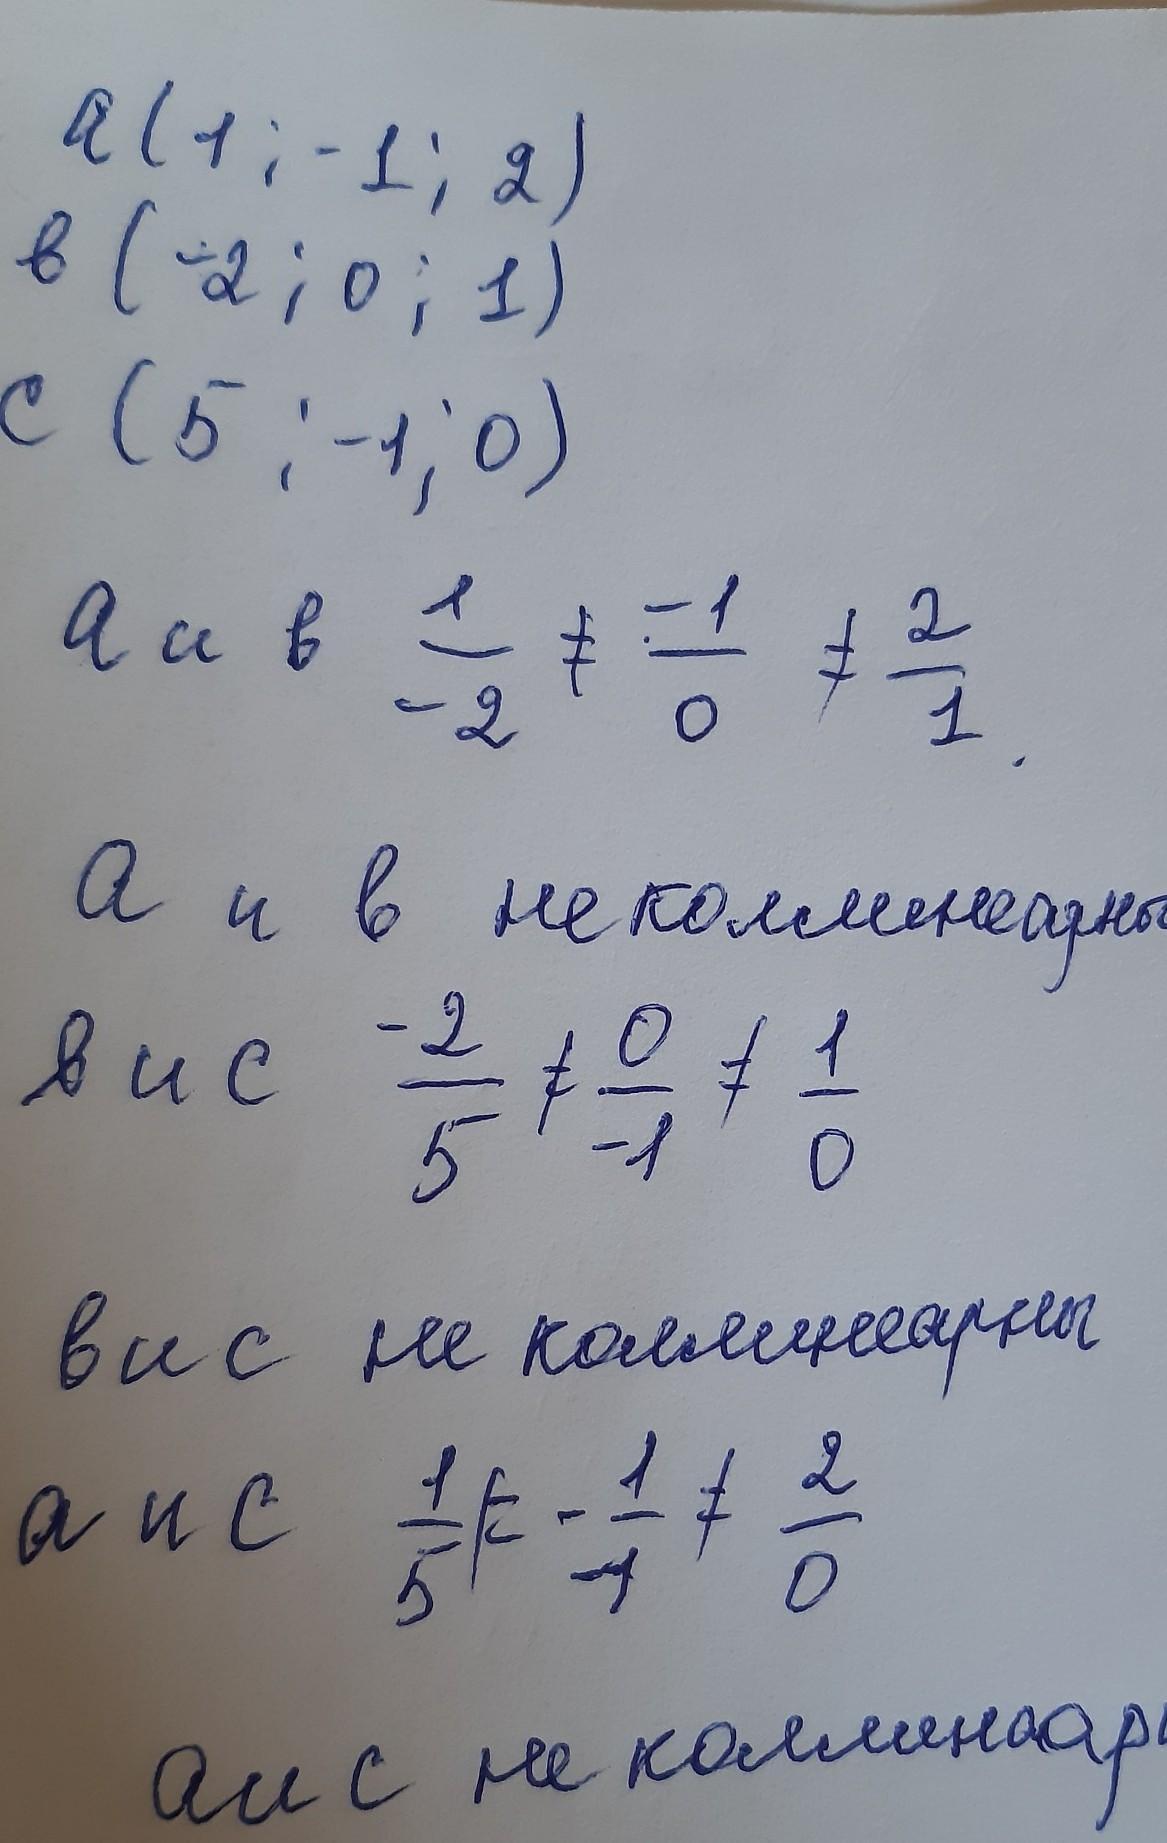 a (1; -1; 2)
в (-2; 0; 1)
с (5; -1; 0)
а и в 1/-2 ≠ -1/0 ≠ 2/1.
а и в не коллинеарны
в и с -2/5 ≠ 0/-1 ≠ 1/0
в и с не коллинеарны
а и с 1/5 ≠ -1/-1 ≠ 2/0
а и с не коллинеарн